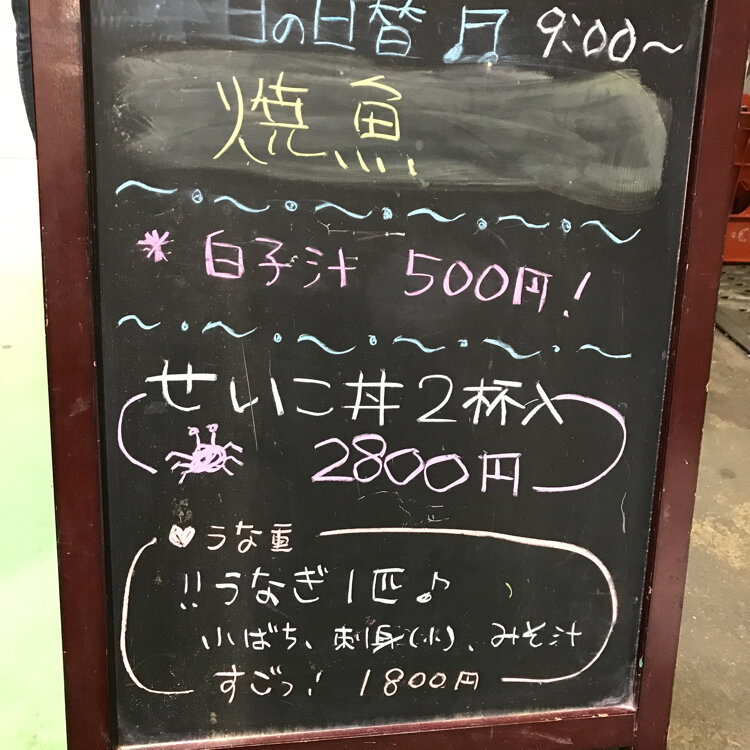 日の日替♫ 9:00~
焼魚
* 白子汁 500円!
せいこ丼2杯入
2800円
♥うな重
!!うなぎ1匹♪
小ばち、刺身(小)、みそ汁
すごっ! 1800円